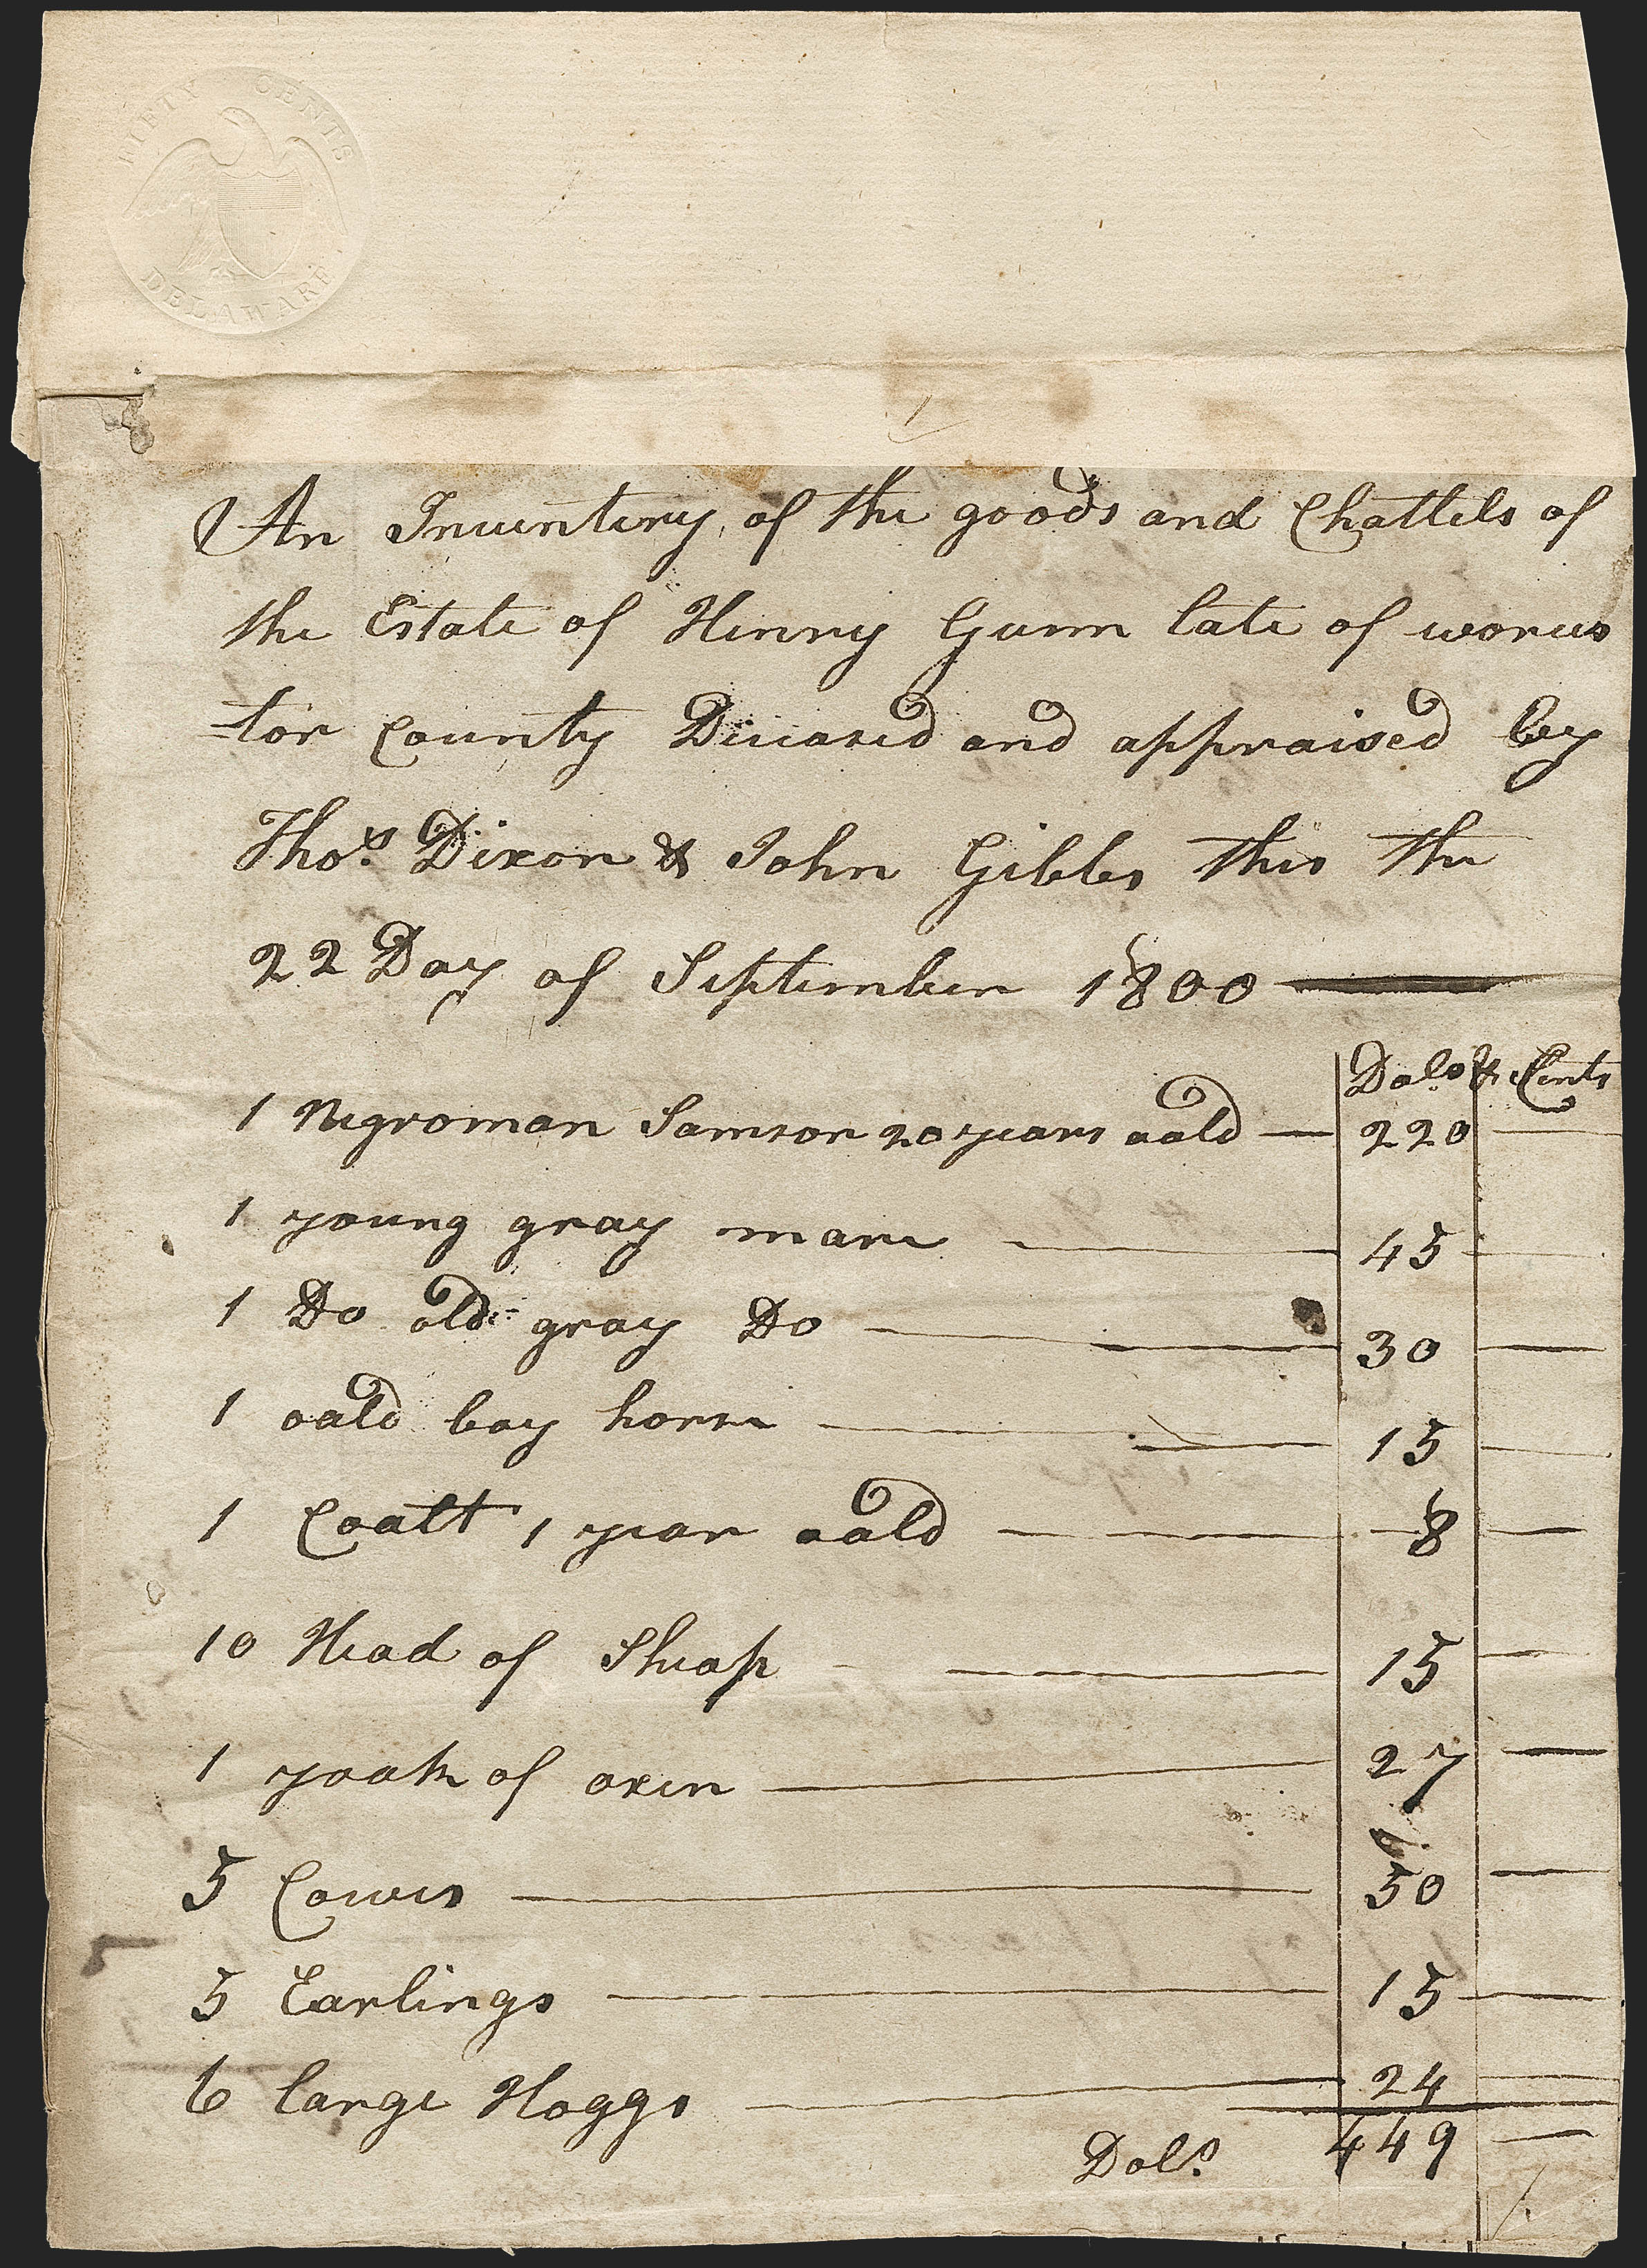 FIFTY CENTS
DELAWARE
An Inventery of the goods and Chattels of
the Estate of Henry Gunn late of worces
tor County Deceased and appraised by
Thos. Dixon & John Gibbs this the
22 Day of September 1800
Dols & Cents
1 Negroman Samson 20 years oald 220
1 young gray mare 45
1 Do old gray Do 30
1 oald bay horse 15
1 Coalt 1 year oald 8
10 Head of Sheap 15
1 yoak of oxen 27
5 Cowes 50
5 Earlings 15
6 large Hoggs 24
Dols. 449